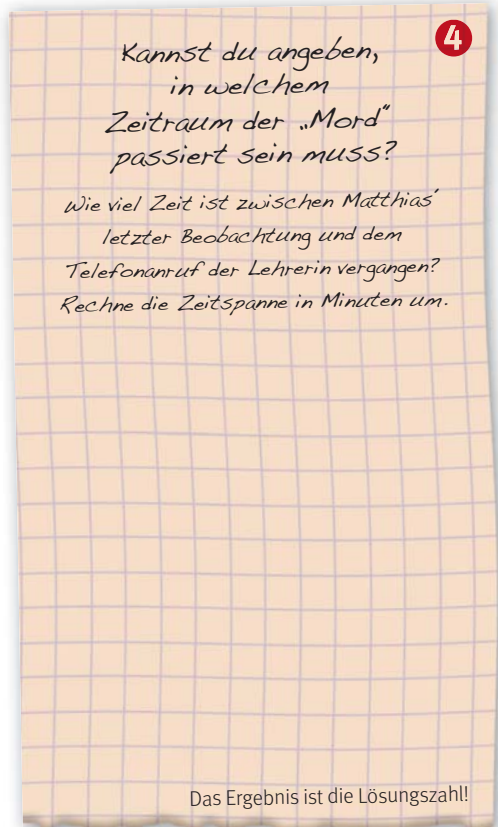 4
Kannst du angeben,
in welchem
Zeitraum der „Mord“
passiert sein muss?
Wie viel Zeit ist zwischen Matthias’
letzter Beobachtung und dem
Telefonanruf der Lehrerin vergangen?
Rechne die Zeitspanne in Minuten um.
Das Ergebnis ist die Lösungszahl!